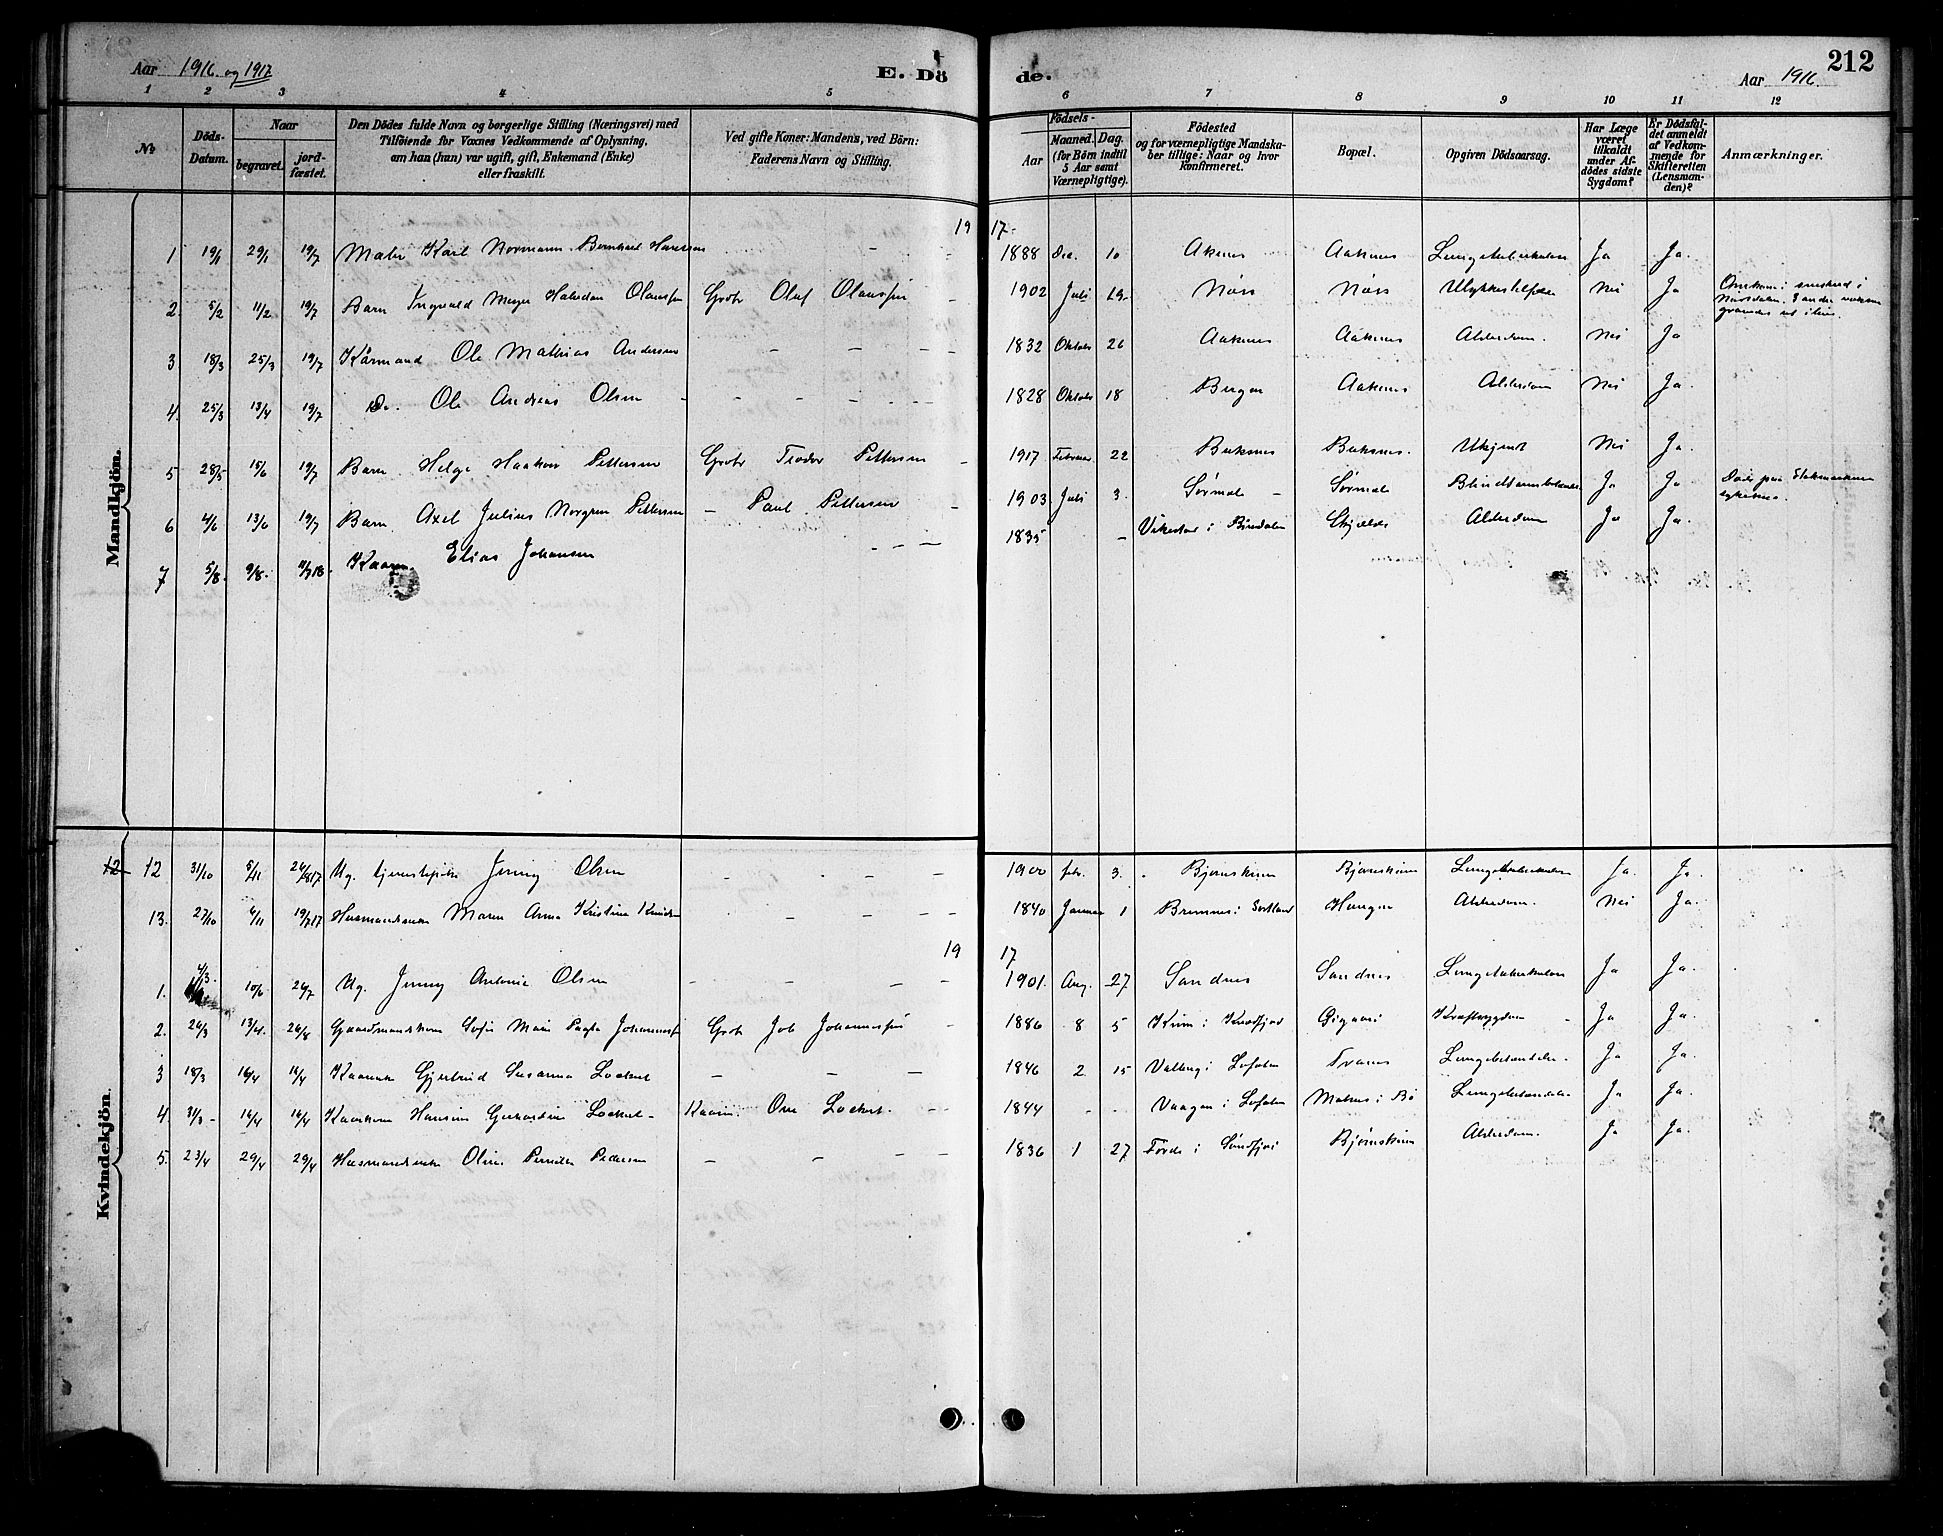 Aar 1916 og 1917
E. Dö de.
Aar 1916.
212
1 2 3 4 5 6 7 8 9 10 11 12
№
Döds-Datum.
Naar
begravet.
jordfæstet.
Den Dödes fulde Navn og borgerlige Stilling (Næringsvei) med
Tilföiende for Voxnes Vedkommende af Oplysning,
om han (hun) var ugift, gift, Enkemand (Enke)
eller fraskilt.
Ved gifte Koner: Mandens, ved Börn:
Faderens Navn og Stilling.
Födsels-
Aar
Maaned. Dag.
(for Börn indtil
5 Aar samt
Værnepligtige).
Födested
og for værnepligtige Mandska-
ber tillige: Naar og hvor
konfirmeret.
Bopæl.
Opgiven Dödsaarsag.
Har Læge
været
tilkaldt
under Af-
dödes sidste
Sygdom?
Er Dödsfal-
det anmeldt
af Vedkom-
mende for
Skifteretten
(Lensman-
den)?
Anmærkninger.
Mandkjön.
19 17.
1 19/1 29/1 19/7 Karl Normann Bernhard Hanssen - - 1888 Dec. 10 Akenes Aakenes Lungetuberkulose Ja Ja.
2. 5/2 11/2 19/7 Barn Ingvald Meyer Halvdan Olaussen Grbr Olaf Olaussen - 1902 Juli 19 Nöss Nöss Ulykkestilfælde Nei Ja Omkom i sneskred i
3 18/3 25/3 19/7 Kårmand Ole Mathias Andersen - - - - 1832 Oktober 26 Aakenes Aakenes Alderdom. Nei Ja
4. 25/3 13/4 19/7 Do. Ole Andreas Olsen - - - - - 1828 Oktober 18 Bergen Aakenes Alderdom Nei Ja.
5 28/5 15/6 19/7 Barn Helge Haakon Pettersen Grbr Teodor Pettersen - 1917 Februar 22 Buksnes Buksnes. Ukjendt Nei Ja.
6 4/6 13/6 19/7 Barn Axel Julius Norgren Pettersen - Paul Pettersen - 1903 Juli 3. Sørmele - Sørmele Blindtarmbetændelse Ja Ja Døde paa Stokmarknes
sykehus.
7 5/8. 9/8. 11/7 18. Elias Johansen - - - 1835 - Vikestad i Bindalen Skjolde Alderdom Ja Ja.
Kvindekjön.
12 12 31/10 5/11 26/8 17 Ug. tjenestepike Jenny Olsen - - - - 1900 febr. 3. Bjørnskinn Bjørnskinn Lungetuberkulose Ja. Ja.
13. 27/10 4/11 19/7 17 Husmandsenke Maren Anna Kristine Knudsen - - - - 1840 Januar 1 Bremnes i Sortland Alderdom. Nei Ja.
19 17
1. 4/3. 10/6 26/7 Ug. Jenny Antonie Olsen - - - - 1901. Aug. 27 Sandnes Sandnes Lungetuberkulose Ja Ja.
2. 26/3 13/4. 26/8 Gaardmandskone Sofie Marie Johannessen Grbr Job Johannessen - 1886 8 5 i Kvæfjord Kræftsygdom - Ja Ja.
3 18/3 16/4 16/4 Gjertrud Susanna Lockert - - - 1846 2. 15 Valberg i Lofoten Tranes Lungebetændelse. Ja Ja.
4. 31/3 - 16/4 16/4 Hansine Lockert - Ove Lockert. - - 1844 - - Vaagan i Lofoten i Bø Lungebetændelse Ja Ja.
5. 23/4 29/4 29/4 Husmandsenke Oline Pernille Pedersen - - - - 1836 1 27 Förde i Söndfjord Bjørnskinn Alderdom. Ja Ja.